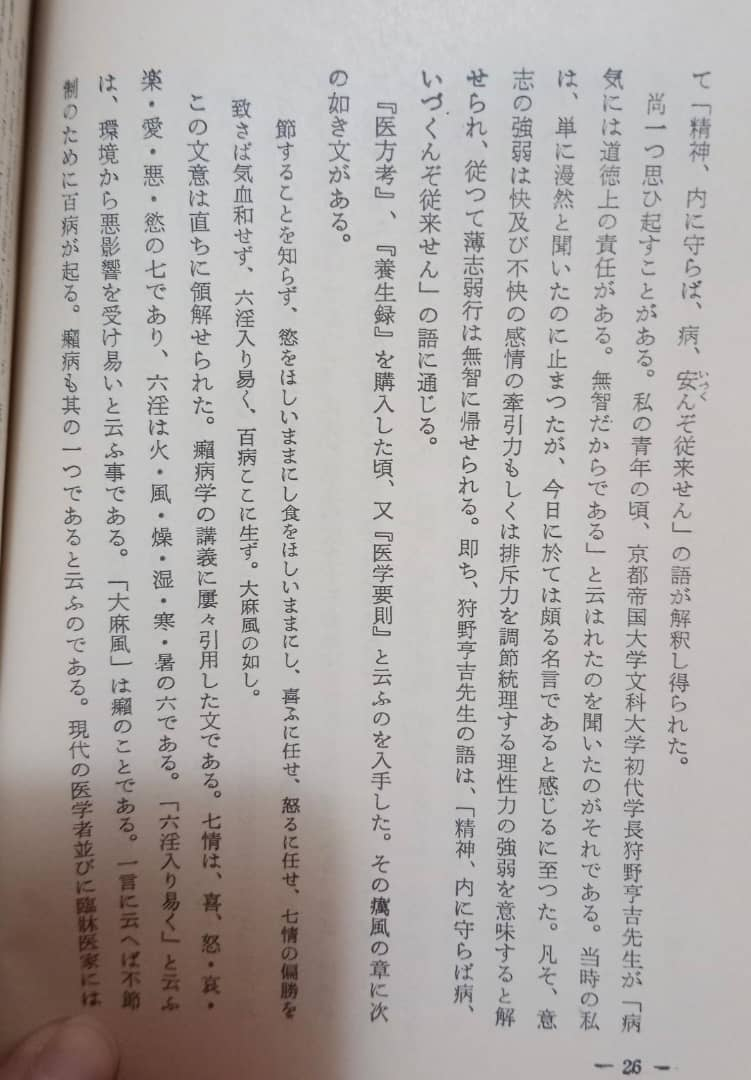 て「精神、内に守らば、病、安んぞ従来せん」の語が解釈し得られた。
いづく
尚一つ思ひ起すことがある。私の青年の頃、京都帝国大学文科大学初代学長狩野亨吉先生が「病
気には道徳上の責任がある。無智だからである」と云はれたのを聞いたのがそれである。当時の私
は、単に漫然と聞いたのに止まつたが、今日に於ては頗る名言であると感じるに至つた。凡そ、意
志の強弱は快及び不快の感情の牽引力もしくは排斥力を調節統理する理性力の強弱を意味すると解
せられ、従つて薄志弱行は無智に帰せられる。即ち、狩野亨吉先生の語は、「精神、内に守らば病、
いづくんぞ従来せん」の語に通じる。
『医方考』、『養生録』を購入した頃、又『医学要則』と云ふのを入手した。その癘風の章に次
の如き文がある。
節することを知らず、慾をほしいままにし食をほしいままにし、喜ふに任せ、怒るに任せ、七情の偏勝を
致さば気血和せず、六淫入り易く、百病ここに生ず。大麻風の如し。
この文意は直ちに領解せられた。癩病学の講義に屢々引用した文である。七情は、喜、怒・哀・
楽・愛・悪・慾の七であり、六淫は火・風・燥・湿・寒・暑の六である。「六淫入り易く」と云ふ
は、環境から悪影響を受け易いと云ふ事である。「大麻風」は癩のことである。一言に云へば不節
制のために百病が起る。癩病も其の一つであると云ふのである。現代の医学者並びに臨牀医家には
— 26 —